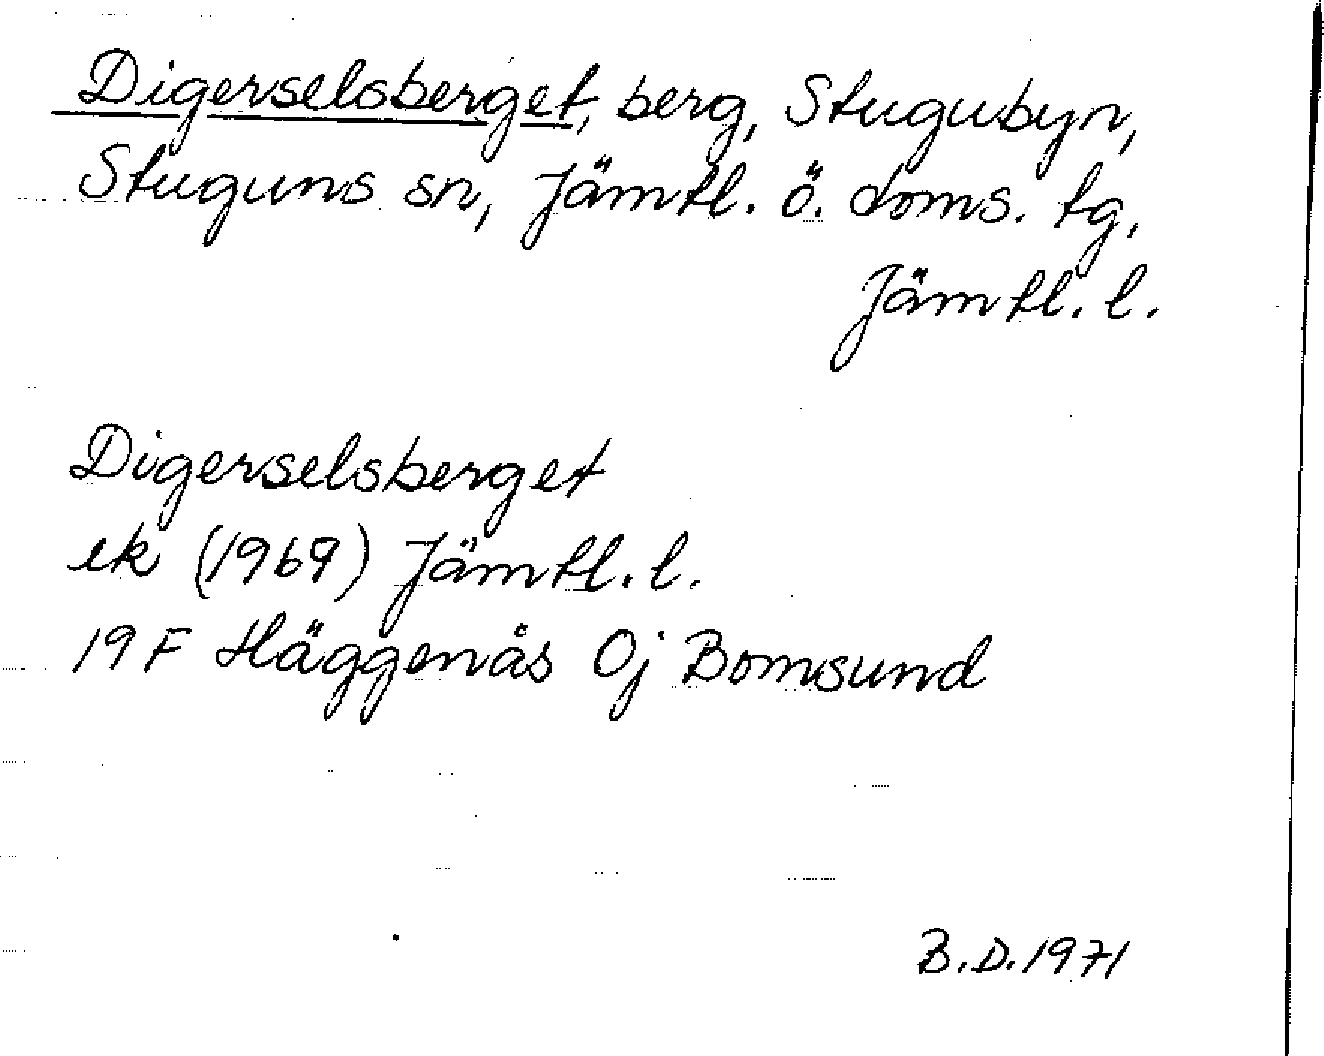 Digerselsberget, berg, Stugubyn,
Stuguns sn, Jämtl. ö. doms. tg,
Jämtl. l.
Digerselsberget
ek (1969) Jämtl. l.
19 F Häggenås Oj Bomsund
B.D. 1971